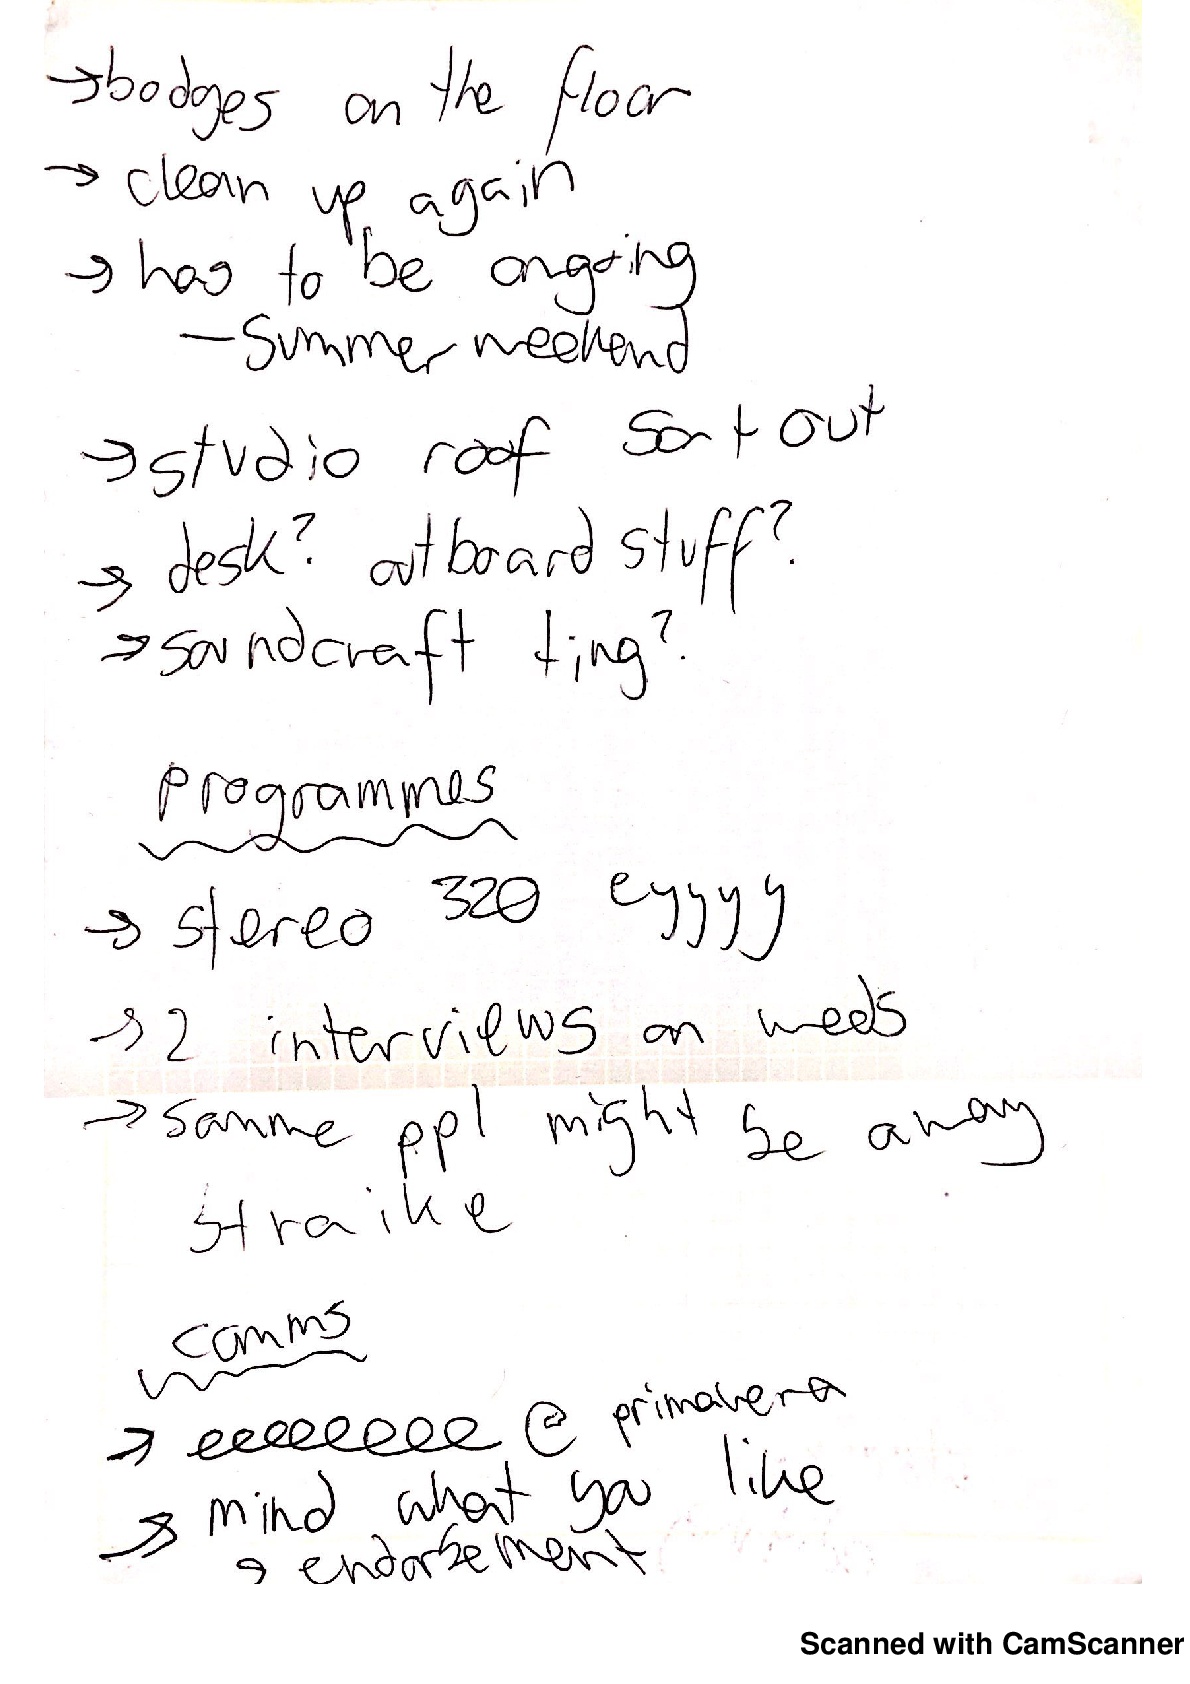 → badges on the floor
→ clean up again
→ has to be ongoing
– Summer weekend
→ studio roof sort out
→ desk? outboard stuff?
→ soundcraft ting?
Programmes
→ stereo 320 eyyyy
→ 2 interviews on weds
→ somme ppl might be away
straike
comms
→ eeeeeeeee @ primavera
→ mind what you like
→ endorsement
Scanned with CamScanner